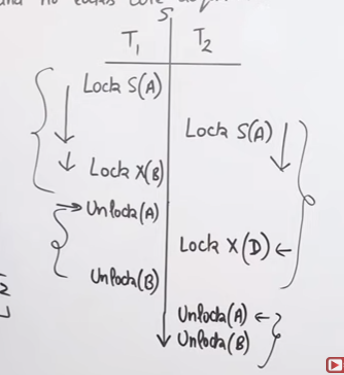 S
T₁ T₂
Lock S(A)
Lock S(A)
Lock X(B)
Unlock(A)
Lock X(D)
Unlock(B)
Unlock(A)
Unlock(B)